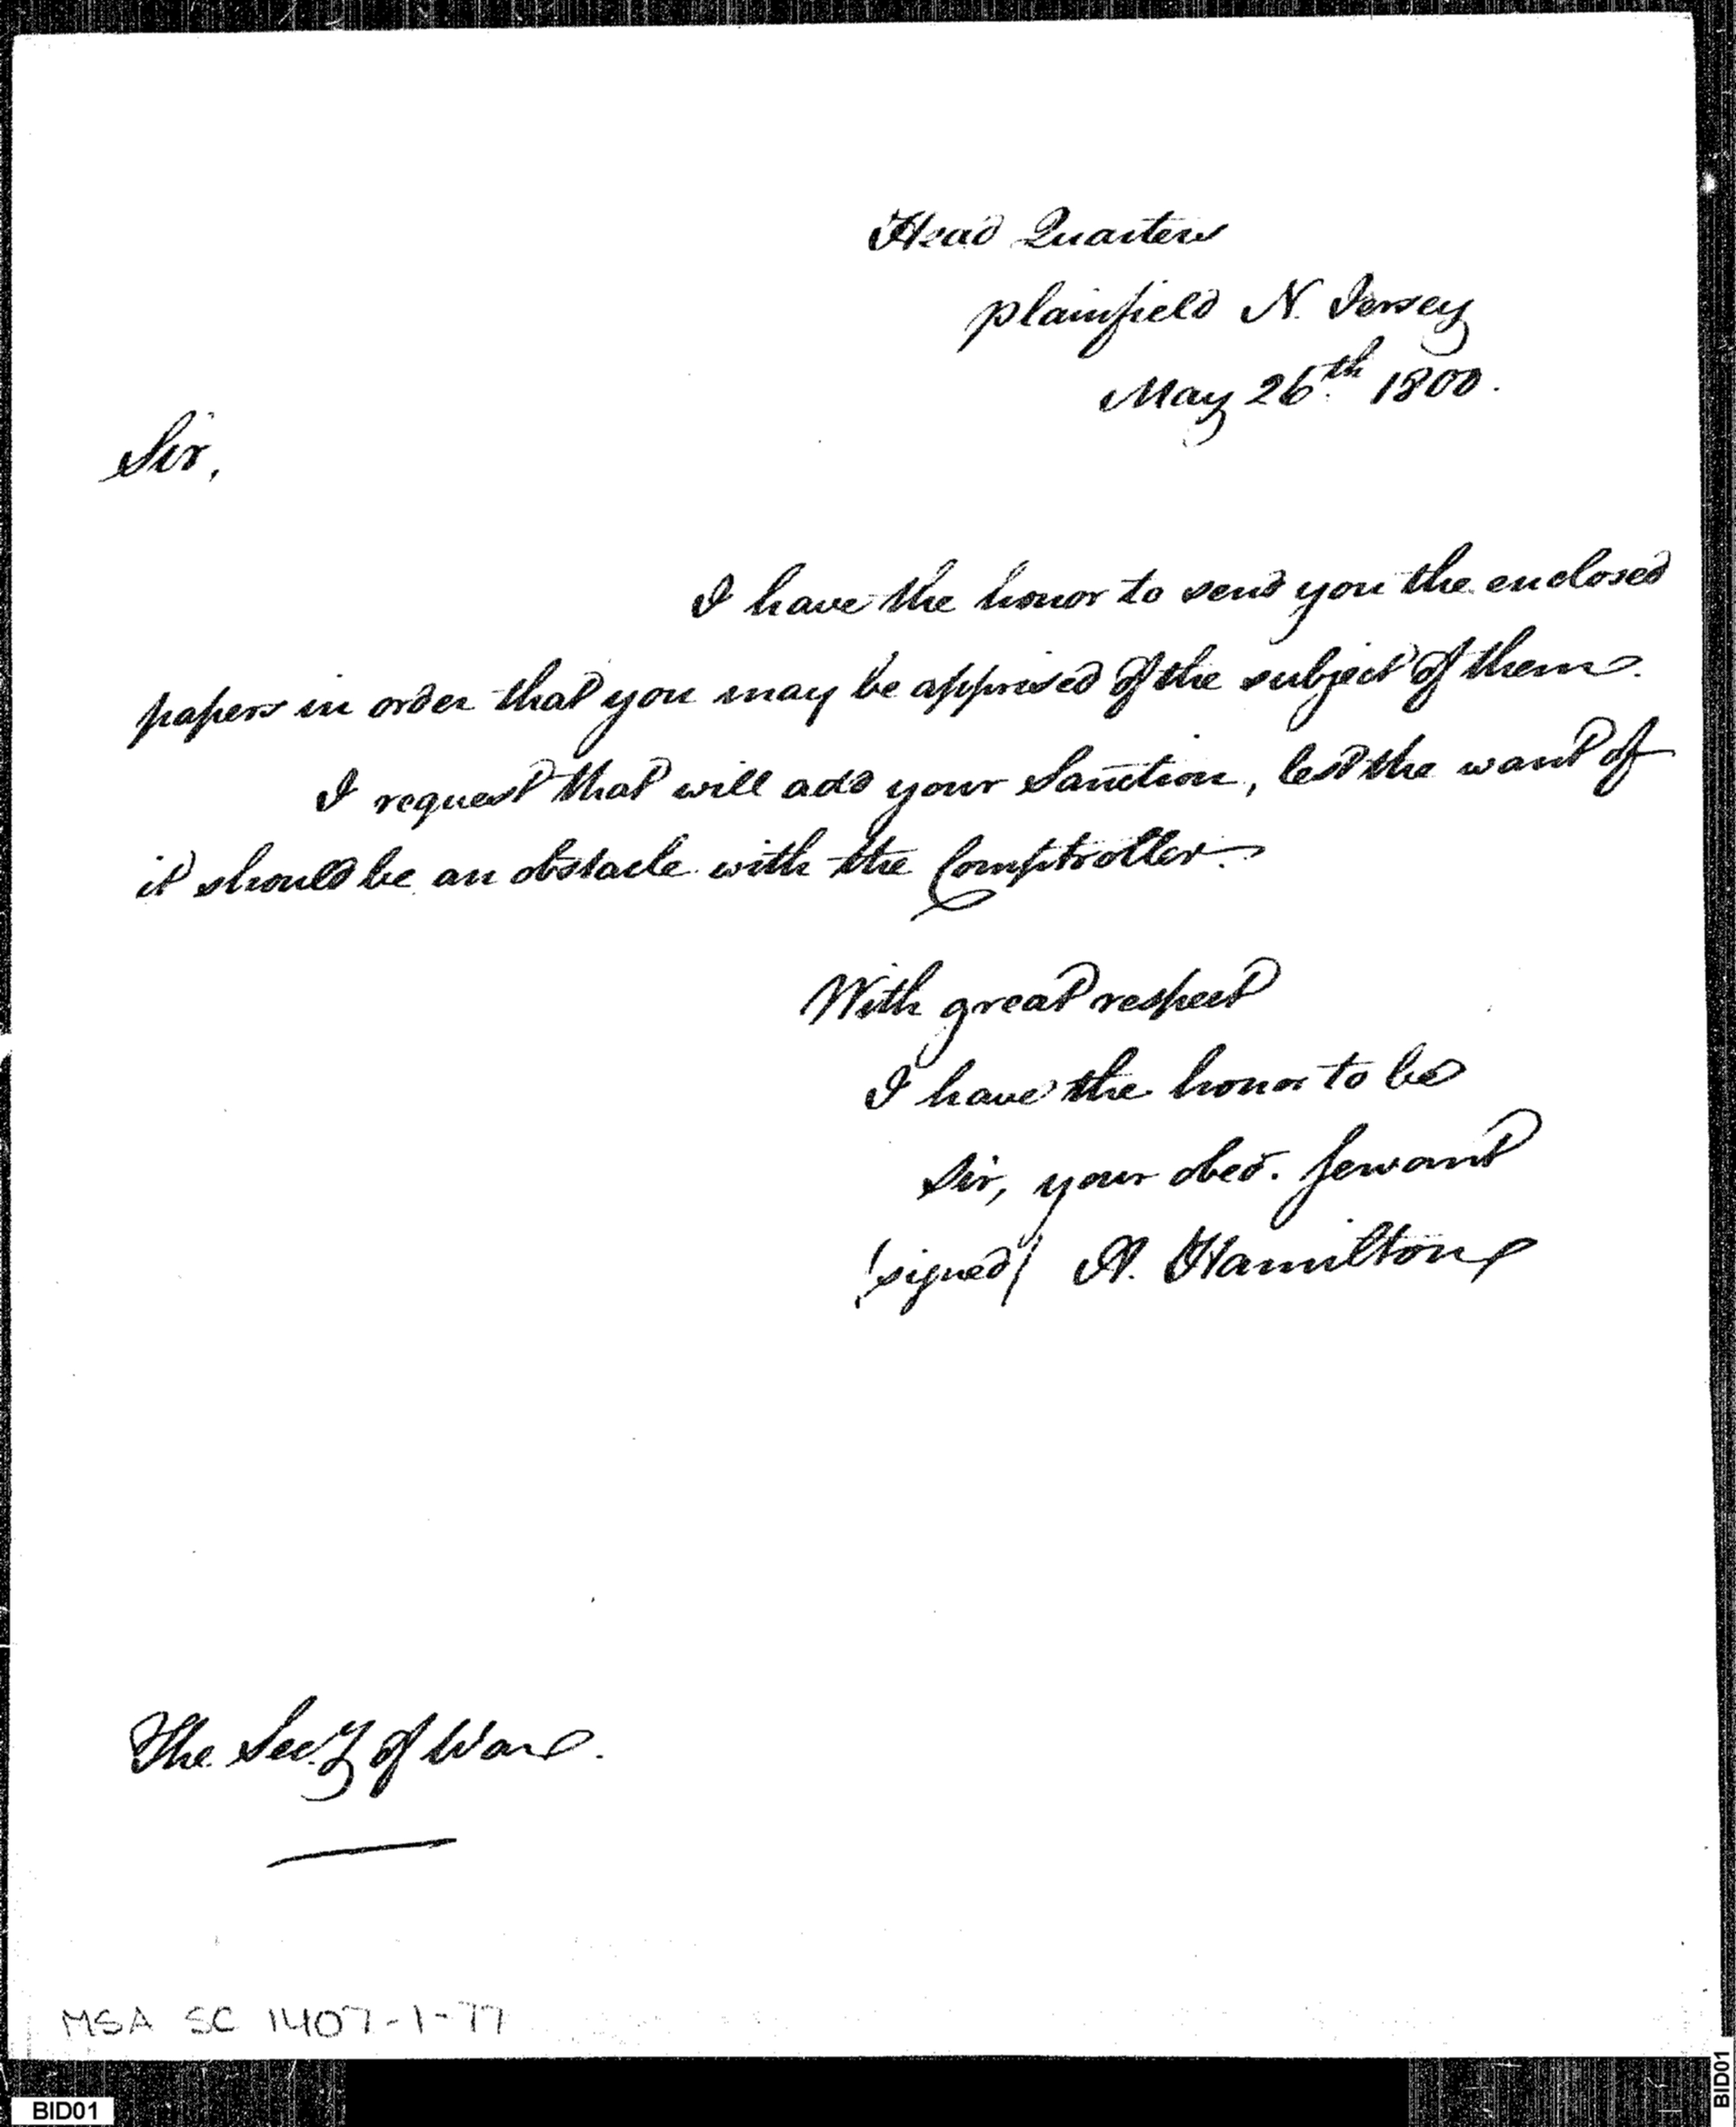 Head Quarters
plainfield N. Jersey
May 26th 1800.
Sir,
I have the honor to send you the enclosed
papers in order that you may be apprised of the subject of them.
I request that will add your Sanction, lest the want of
it should be an obstacle with the Comptroller.
With great respect
I have the honor to be
Sir, your obed. Servant
(signed) A. Hamilton
The Secy of War.
MSA SC 1407-1-77
BID01
BID01